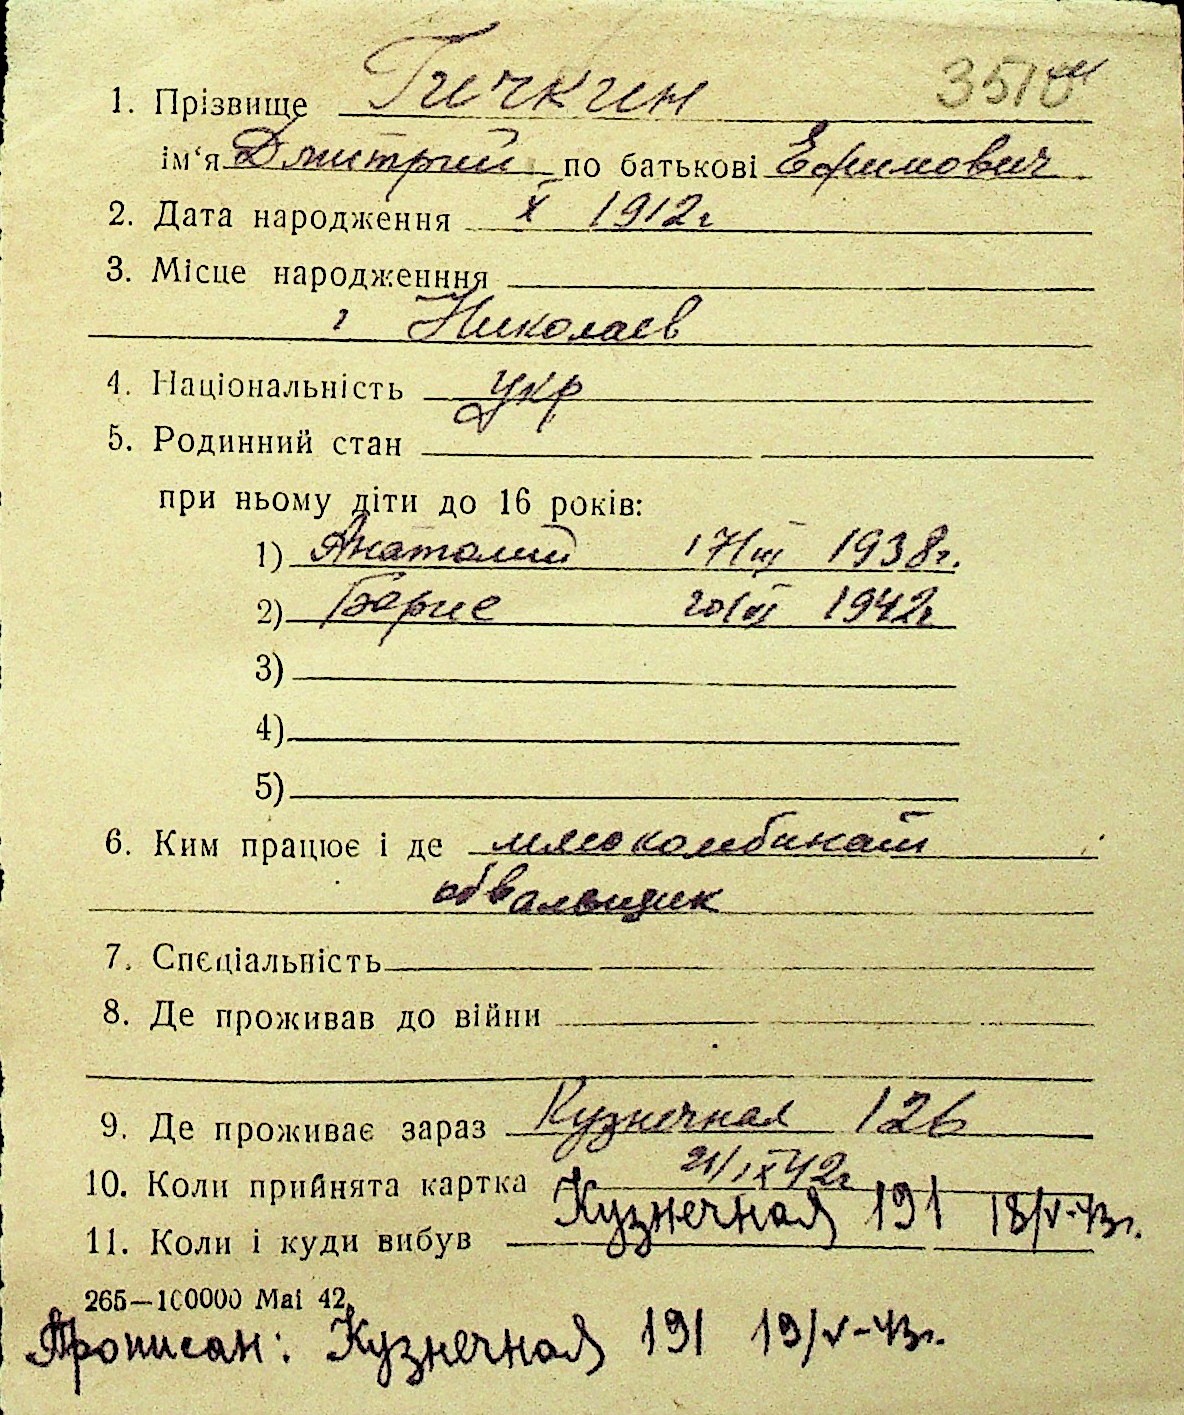 1. Прізвище Гичкин 3510
ім'я Дмитрий по батькові Ефимович
2. Дата народження X 1912г
3. Місце народженння
г Николаев
4. Національність укр
5. Родинний стан
при ньому діти до 16 років:
1) Анатолий 17/III 1938г.
2) Борис 20/VI 1942г
3)
4)
5)
6. Ким працює і де мясокомбинат
обвальщик
7. Спеціальність
8. Де проживав до війни
9. Де проживає зараз Кузнечная 126
10. Коли прийнята картка 21/IX 42г
11. Коли і куди вибув Кузнечная 191 18/V-43г.
265—100000 Mai 42.
Прописан: Кузнечная 191 19/V-43г.